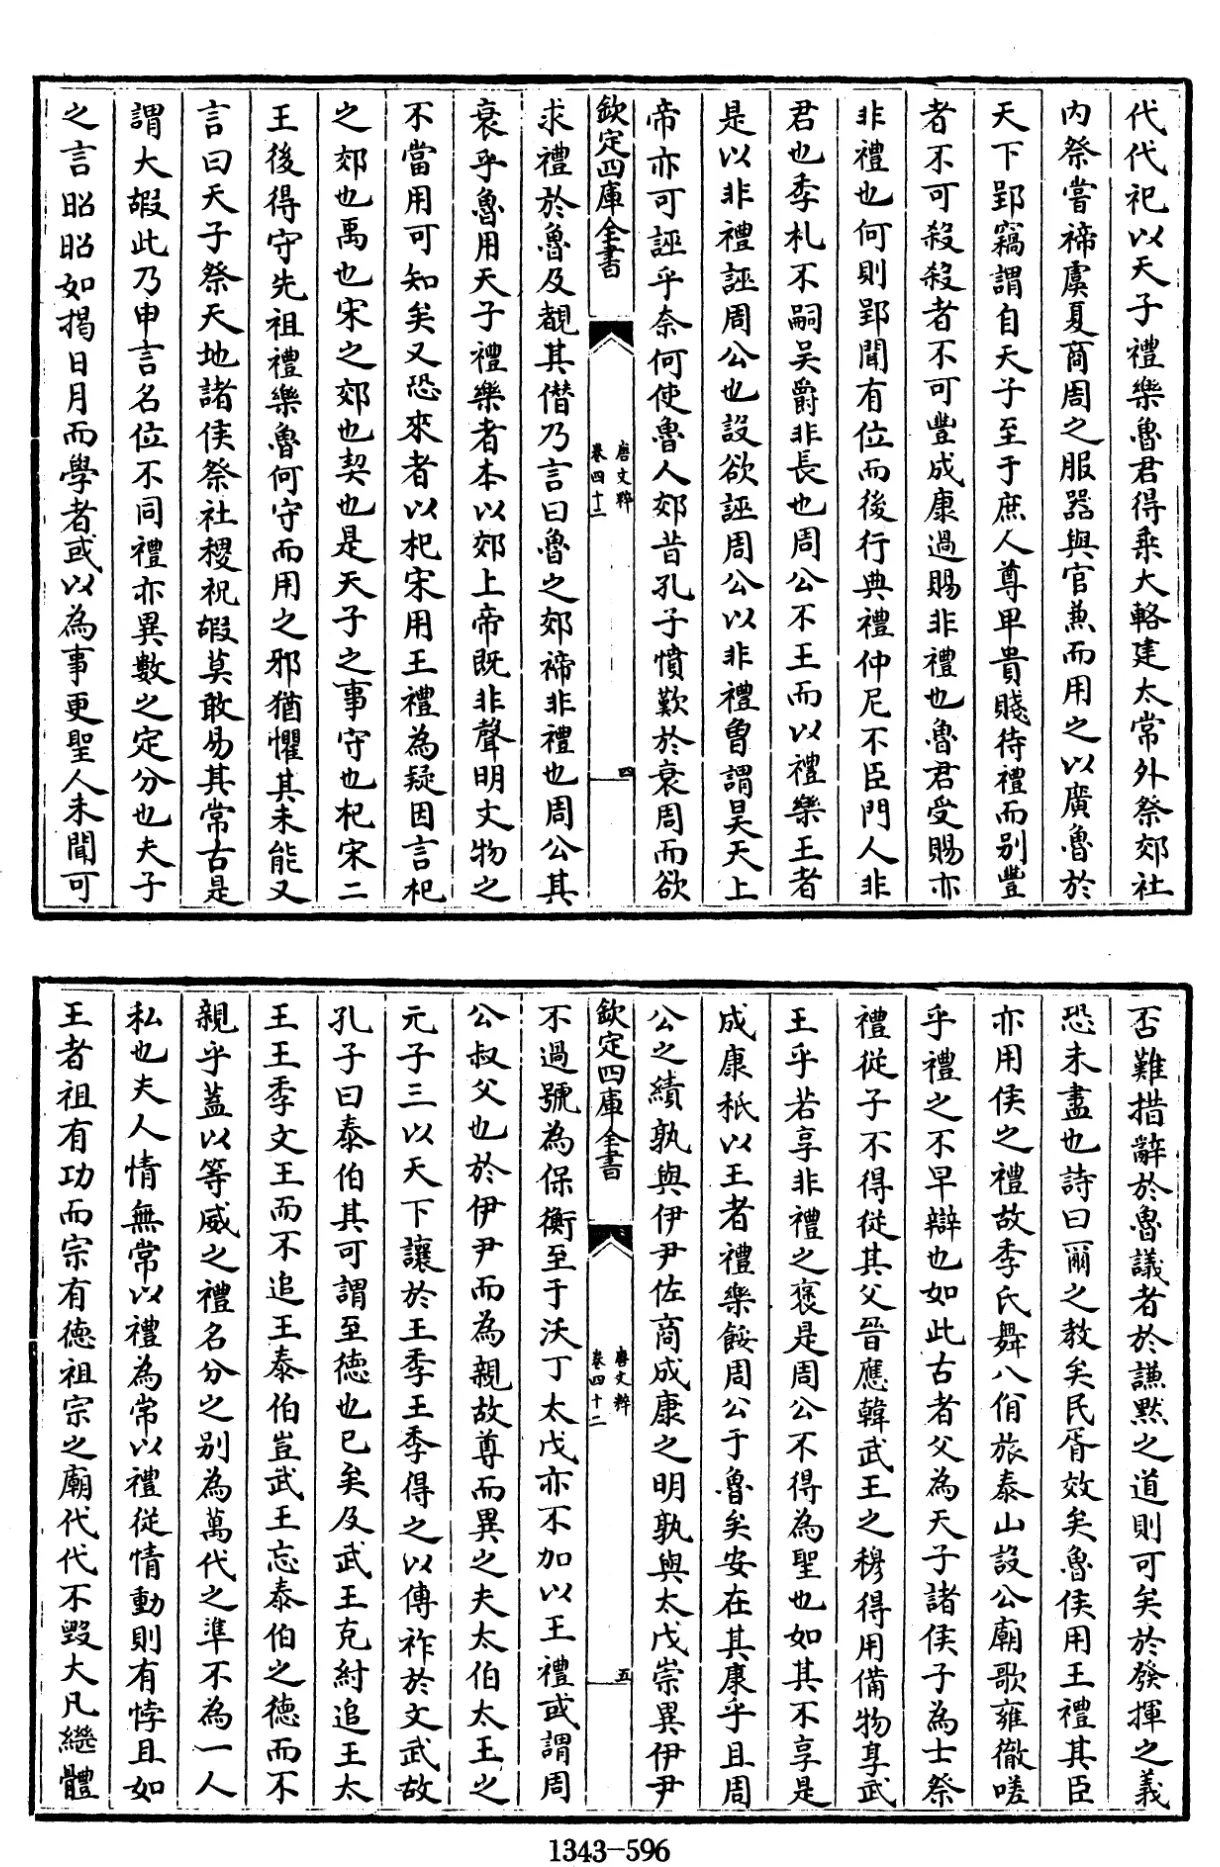 代代祀以天子禮樂魯君得乘大輅建太常外祭郊社
内祭嘗禘虞夏商周之服器與官兼而用之以廣魯於
天下郢竊謂自天子至于庶人尊卑貴賤待禮而别豐
者不可殺殺者不可豐成康過賜非禮也魯君受賜亦
非禮也何則郢聞有位而後行典禮仲尼不臣門人非
君也季札不嗣吴爵非長也周公不王而以禮樂王者
是以非禮誣周公也設欲誣周公以非禮曽謂昊天上
帝亦可誣乎奈何使魯人郊昔孔子憤歎於衰周而欲
欽定四庫全書
唐文粹
卷四十二
四
求禮於魯及覩其僭乃言曰魯之郊禘非禮也周公其
衰乎魯用天子禮樂者本以郊上帝既非聲明文物之
不當用可知矣又恐來者以杞宋用王禮為疑因言杞
之郊也禹也宋之郊也契也是天子之事守也杞宋二
王後得守先祖禮樂魯何守而用之邪猶懼其未能又
言曰天子祭天地諸侯祭社稷祝嘏莫敢易其常古是
謂大嘏此乃申言名位不同禮亦異數之定分也夫子
之言昭昭如揭日月而學者或以為事更聖人未聞可
否難措辭於魯議者於謙黙之道則可矣於發揮之義
恐未盡也詩曰爾之教矣民胥效矣魯侯用王禮其臣
亦用侯之禮故季氏舞八佾旅泰山設公廟歌雍徹嗟
乎禮之不早辯也如此古者父為天子諸侯子為士祭
禮從子不得從其父晉應韓武王之穆得用備物享武
王乎若享非禮之褒是周公不得為聖也如其不享是
成康秖以王者禮樂餒周公于魯矣安在其康乎且周
公之績孰與伊尹佐商成康之明孰與太戊崇異伊尹
欽定四庫全書
唐文粹
卷四十二
五
不過號為保衡至于沃丁太戊亦不加以王禮或謂周
公叔父也於伊尹而為親故尊而異之夫太伯太王之
元子三以天下讓於王季王季得之以傳祚於文武故
孔子曰泰伯其可謂至德也已矣及武王克紂追王太
王王季文王而不追王泰伯豈武王忘泰伯之德而不
親乎蓋以等威之禮名分之别為萬代之準不為一人
私也夫人情無常以禮為常以禮從情動則有悖且如
王者祖有功而宗有德祖宗之廟代代不毁大凡繼體
1343-596